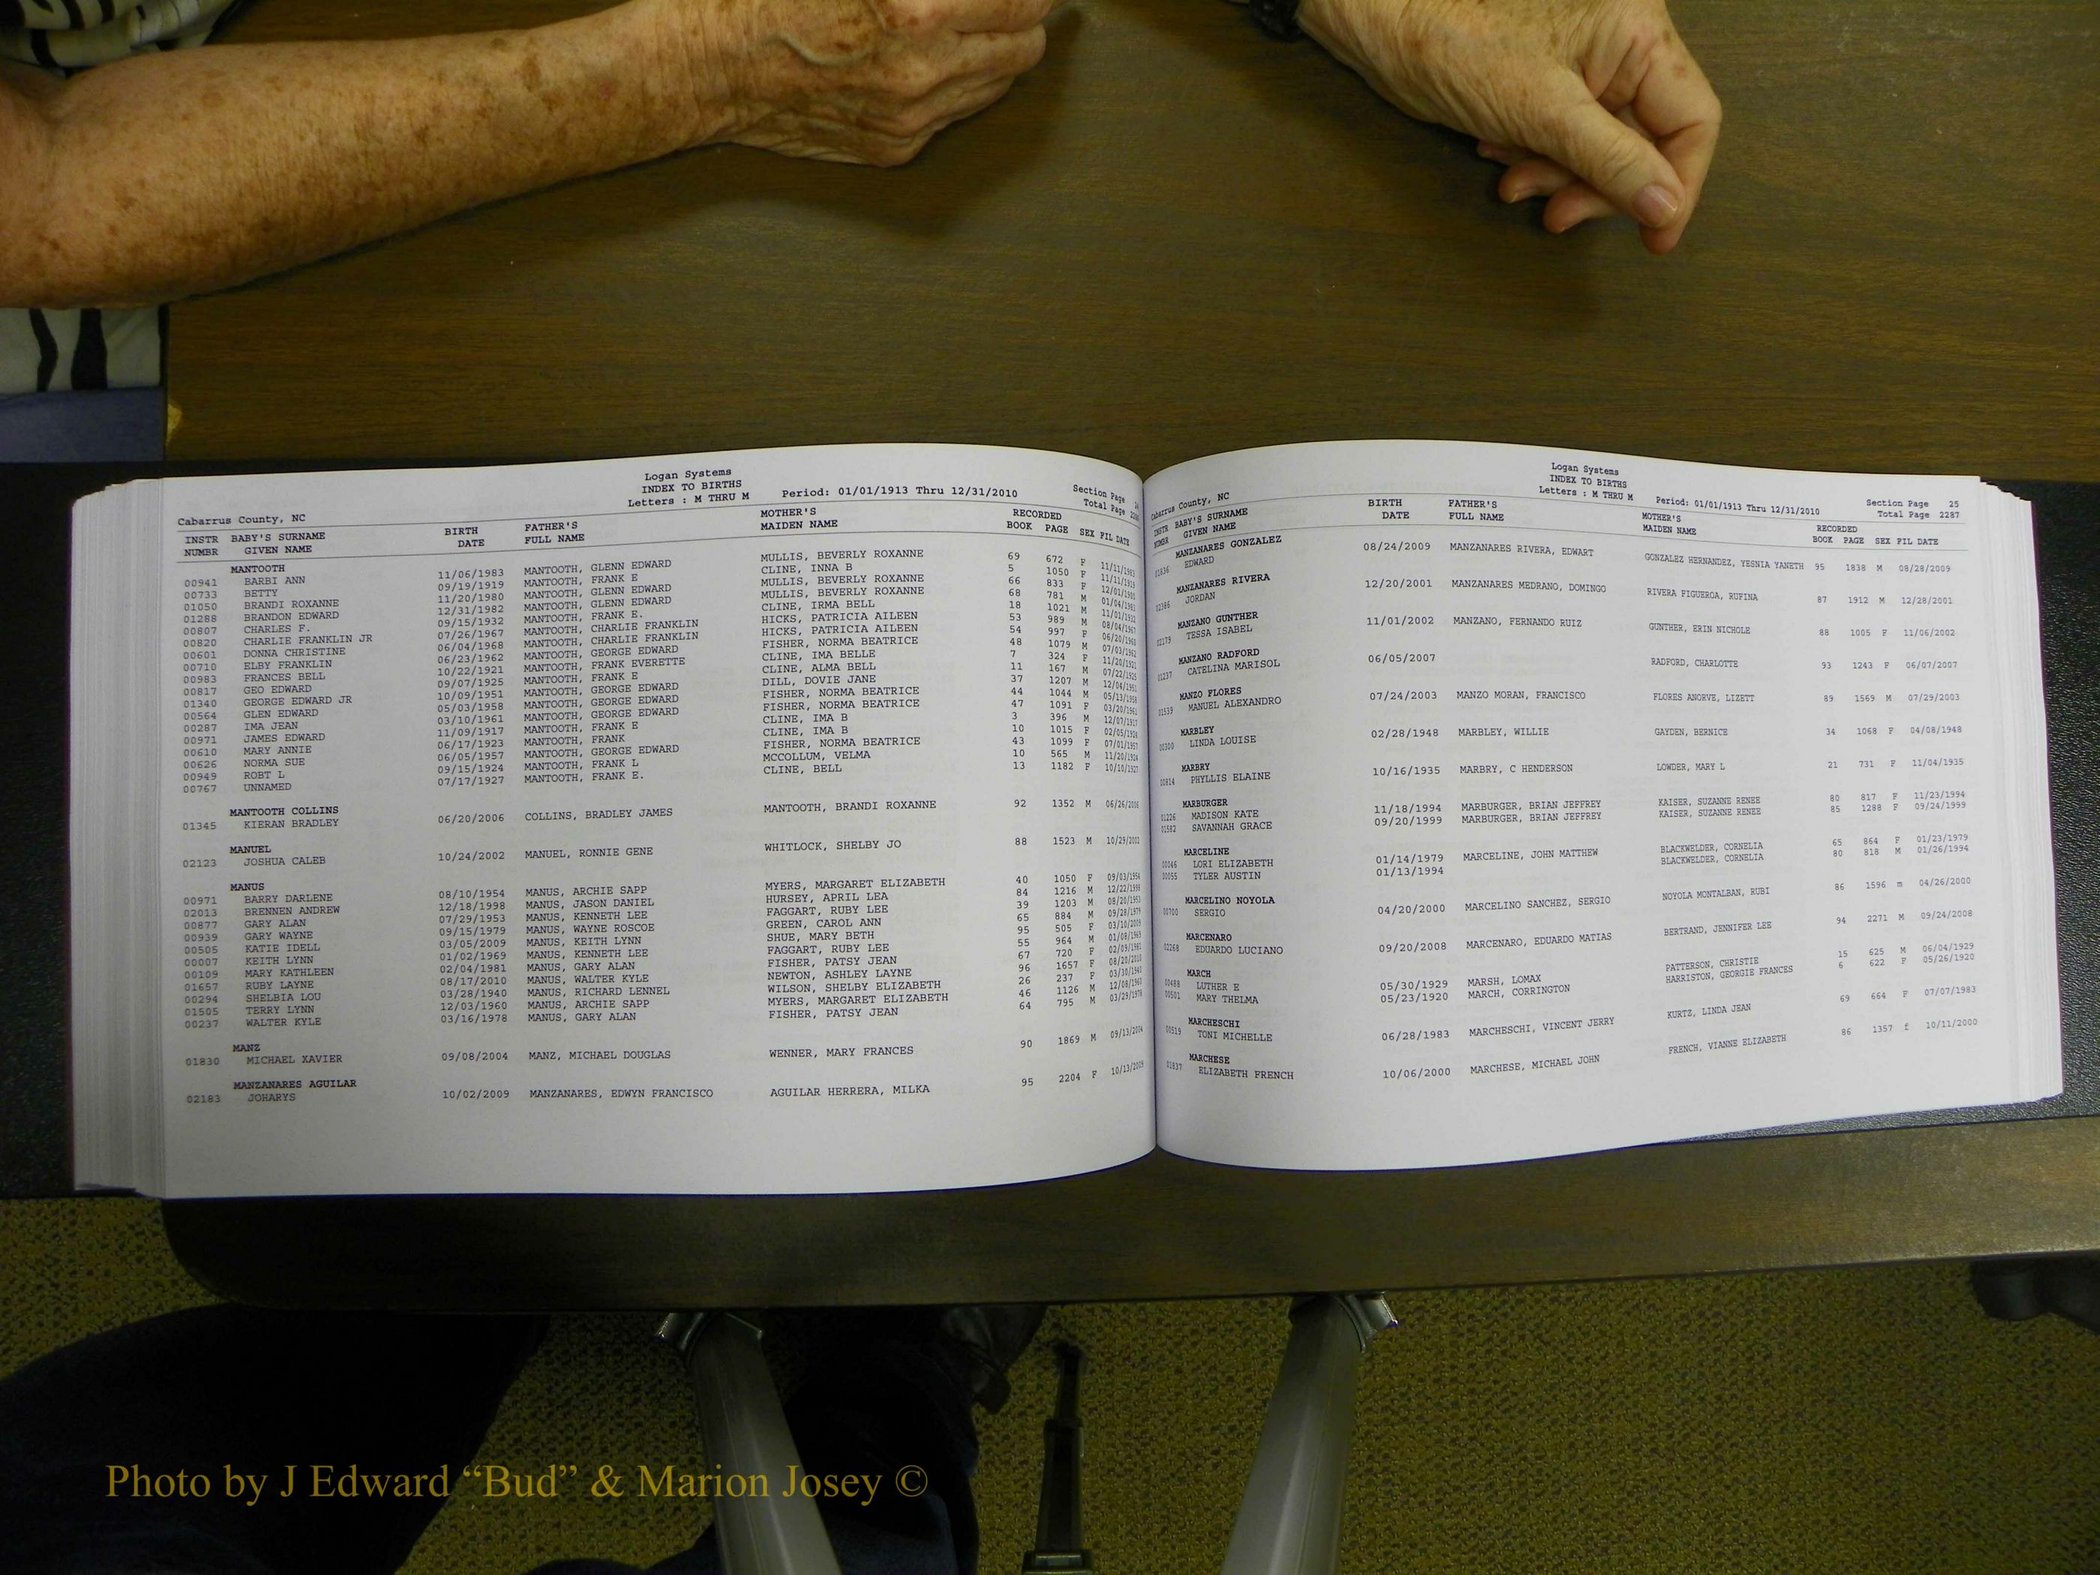 Logan Systems
INDEX TO BIRTHS
Letters : M THRU M Period: 01/01/1913 Thru 12/31/2010 Section Page
Cabarrus County, NC Total Page
INSTR BABY'S SURNAME BIRTH FATHER'S MOTHER'S RECORDED
NUMBR GIVEN NAME DATE FULL NAME MAIDEN NAME BOOK PAGE SEX FIL DATE
MANTOOTH
00941 BARBI ANN 11/06/1983 MANTOOTH, GLENN EDWARD MULLIS, BEVERLY ROXANNE 69 672 F 11/11/1983
00733 BETTY 09/19/1919 MANTOOTH, FRANK E CLINE, INNA B 5 1050 F 11/11/1919
01050 BRANDI ROXANNE 11/20/1980 MANTOOTH, GLENN EDWARD MULLIS, BEVERLY ROXANNE 66 833 F 12/01/1980
01288 BRANDON EDWARD 12/31/1982 MANTOOTH, GLENN EDWARD MULLIS, BEVERLY ROXANNE 68 781 M 01/04/1983
00807 CHARLES F. 09/15/1932 MANTOOTH, FRANK E. CLINE, IRMA BELL 18 1021 M 11/01/1932
00820 CHARLIE FRANKLIN JR 07/26/1967 MANTOOTH, CHARLIE FRANKLIN HICKS, PATRICIA AILEEN 53 989 M 08/04/1967
00601 DONNA CHRISTINE 06/04/1968 MANTOOTH, CHARLIE FRANKLIN HICKS, PATRICIA AILEEN 54 997 F 06/20/1968
00710 ELBY FRANKLIN 06/23/1962 MANTOOTH, GEORGE EDWARD FISHER, NORMA BEATRICE 48 1079 M 07/03/1962
00983 FRANCES BELL 10/22/1921 MANTOOTH, FRANK EVERETTE CLINE, IMA BELLE 7 324 F 11/20/1921
00817 GEO EDWARD 09/07/1925 MANTOOTH, FRANK E CLINE, ALMA BELL 11 167 M
01340 GEORGE EDWARD JR 10/09/1951 MANTOOTH, GEORGE EDWARD DILL, DOVIE JANE 37 1207 M 12/04/1951
00564 GLEN EDWARD 05/03/1958 MANTOOTH, GEORGE EDWARD FISHER, NORMA BEATRICE 44 1044 M 05/13/1958
00287 IMA JEAN 03/10/1961 MANTOOTH, GEORGE EDWARD FISHER, NORMA BEATRICE 47 1091 F 03/20/1961
00971 JAMES EDWARD 11/09/1917 MANTOOTH, FRANK E CLINE, IMA B 3 396 M 12/07/1917
00610 MARY ANNIE 06/17/1923 MANTOOTH, FRANK CLINE, IMA B 10 1015 F
00626 NORMA SUE 06/05/1957 MANTOOTH, GEORGE EDWARD FISHER, NORMA BEATRICE 43 1099 F 07/01/1957
00949 ROBT L 09/15/1924 MANTOOTH, FRANK L MCCOLLUM, VELMA 10 565 M 11/20/1924
00767 UNNAMED 07/17/1927 MANTOOTH, FRANK E. CLINE, BELL 13 1182 F 10/10/1927
MANTOOTH COLLINS
01345 KIERAN BRADLEY 06/20/2006 COLLINS, BRADLEY JAMES MANTOOTH, BRANDI ROXANNE 92 1352 M 06/26/2006
MANUEL
02123 JOSHUA CALEB 10/24/2002 MANUEL, RONNIE GENE WHITLOCK, SHELBY JO 88 1523 M 10/29/2002
MANUS
00971 BARRY DARLENE 08/10/1954 MANUS, ARCHIE SAPP MYERS, MARGARET ELIZABETH 40 1050 F 09/03/1954
02013 BRENNEN ANDREW 12/18/1998 MANUS, JASON DANIEL HURSEY, APRIL LEA 84 1216 M 12/22/1998
00877 GARY ALAN 07/29/1953 MANUS, KENNETH LEE FAGGART, RUBY LEE 39 1203 M 08/20/1953
00939 GARY WAYNE 09/15/1979 MANUS, WAYNE ROSCOE GREEN, CAROL ANN 65 884 M 09/28/1979
00505 KATIE IDELL 03/05/2009 MANUS, KEITH LYNN SHUE, MARY BETH 95 505 F 03/10/2009
00007 KEITH LYNN 01/02/1969 MANUS, KENNETH LEE FAGGART, RUBY LEE 55 964 M 01/08/1969
00109 MARY KATHLEEN 02/04/1981 MANUS, GARY ALAN FISHER, PATSY JEAN 67 720 F 02/09/1981
01657 RUBY LAYNE 08/17/2010 MANUS, WALTER KYLE NEWTON, ASHLEY LAYNE 96 1657 F 08/20/2010
00294 SHELBIA LOU 03/28/1940 MANUS, RICHARD LENNEL WILSON, SHELBY ELIZABETH 26 237 F 03/30/1940
01505 TERRY LYNN 12/03/1960 MANUS, ARCHIE SAPP MYERS, MARGARET ELIZABETH 46 1126 M 12/08/1960
00237 WALTER KYLE 03/16/1978 MANUS, GARY ALAN FISHER, PATSY JEAN 64 795 M 03/29/1978
MANZ
01830 MICHAEL XAVIER 09/08/2004 MANZ, MICHAEL DOUGLAS WENNER, MARY FRANCES 90 1869 M 09/13/2004
MANZANARES AGUILAR
02183 JOHARYS 10/02/2009 MANZANARES, EDWYN FRANCISCO AGUILAR HERRERA, MILKA 95 2204 F 10/13/2009
Logan Systems
INDEX TO BIRTHS
Letters : M THRU M Period: 01/01/1913 Thru 12/31/2010 Section Page 25
Cabarrus County, NC Total Page 2287
INSTR BABY'S SURNAME BIRTH FATHER'S MOTHER'S RECORDED
NUMBR GIVEN NAME DATE FULL NAME MAIDEN NAME BOOK PAGE SEX FIL DATE
MANZANARES GONZALEZ
01836 EDWARD 08/24/2009 MANZANARES RIVERA, EDWART GONZALEZ HERNANDEZ, YESNIA YANETH 95 1838 M 08/28/2009
MANZANARES RIVERA
02386 JORDAN 12/20/2001 MANZANARES MEDRANO, DOMINGO RIVERA FIGUEROA, RUFINA 87 1912 M 12/28/2001
MANZANO GUNTHER
02179 TESSA ISABEL 11/01/2002 MANZANO, FERNANDO RUIZ GUNTHER, ERIN NICHOLE 88 1005 F 11/06/2002
MANZANO RADFORD
01237 CATELINA MARISOL 06/05/2007 RADFORD, CHARLOTTE 93 1243 F 06/07/2007
MANZO FLORES
01539 MANUEL ALEXANDRO 07/24/2003 MANZO MORAN, FRANCISCO FLORES ANORVE, LIZETT 89 1569 M 07/29/2003
MARBLEY
00300 LINDA LOUISE 02/28/1948 MARBLEY, WILLIE GAYDEN, BERNICE 34 1068 F 04/08/1948
MARBRY
00814 PHYLLIS ELAINE 10/16/1935 MARBRY, C HENDERSON LOWDER, MARY L 21 731 F 11/04/1935
MARBURGER
01226 MADISON KATE 11/18/1994 MARBURGER, BRIAN JEFFREY KAISER, SUZANNE RENEE 80 817 F 11/23/1994
01582 SAVANNAH GRACE 09/20/1999 MARBURGER, BRIAN JEFFREY KAISER, SUZANNE RENEE 85 1288 F 09/24/1999
MARCELINE
00046 LORI ELIZABETH 01/14/1979 MARCELINE, JOHN MATTHEW BLACKWELDER, CORNELIA 65 864 F 01/23/1979
00055 TYLER AUSTIN 01/13/1994 BLACKWELDER, CORNELIA 80 818 M 01/26/1994
MARCELINO NOYOLA
00700 SERGIO 04/20/2000 MARCELINO SANCHEZ, SERGIO NOYOLA MONTALBAN, RUBI 86 1596 m 04/26/2000
MARCENARO
02268 EDUARDO LUCIANO 09/20/2008 MARCENARO, EDUARDO MATIAS BERTRAND, JENNIFER LEE 94 2271 M 09/24/2008
MARCH
00488 LUTHER E 05/30/1929 MARSH, LOMAX PATTERSON, CHRISTIE 15 625 M 06/04/1929
00501 MARY THELMA 05/23/1920 MARCH, CORRINGTON HARRISTON, GEORGIE FRANCES 6 622 F 05/26/1920
MARCHESCHI
00519 TONI MICHELLE 06/28/1983 MARCHESCHI, VINCENT JERRY KURTZ, LINDA JEAN 69 664 F 07/07/1983
MARCHESE
01837 ELIZABETH FRENCH 10/06/2000 MARCHESE, MICHAEL JOHN FRENCH, VIANNE ELIZABETH 86 1357 f 10/11/2000
Photo by J Edward “Bud” & Marion Josey ©